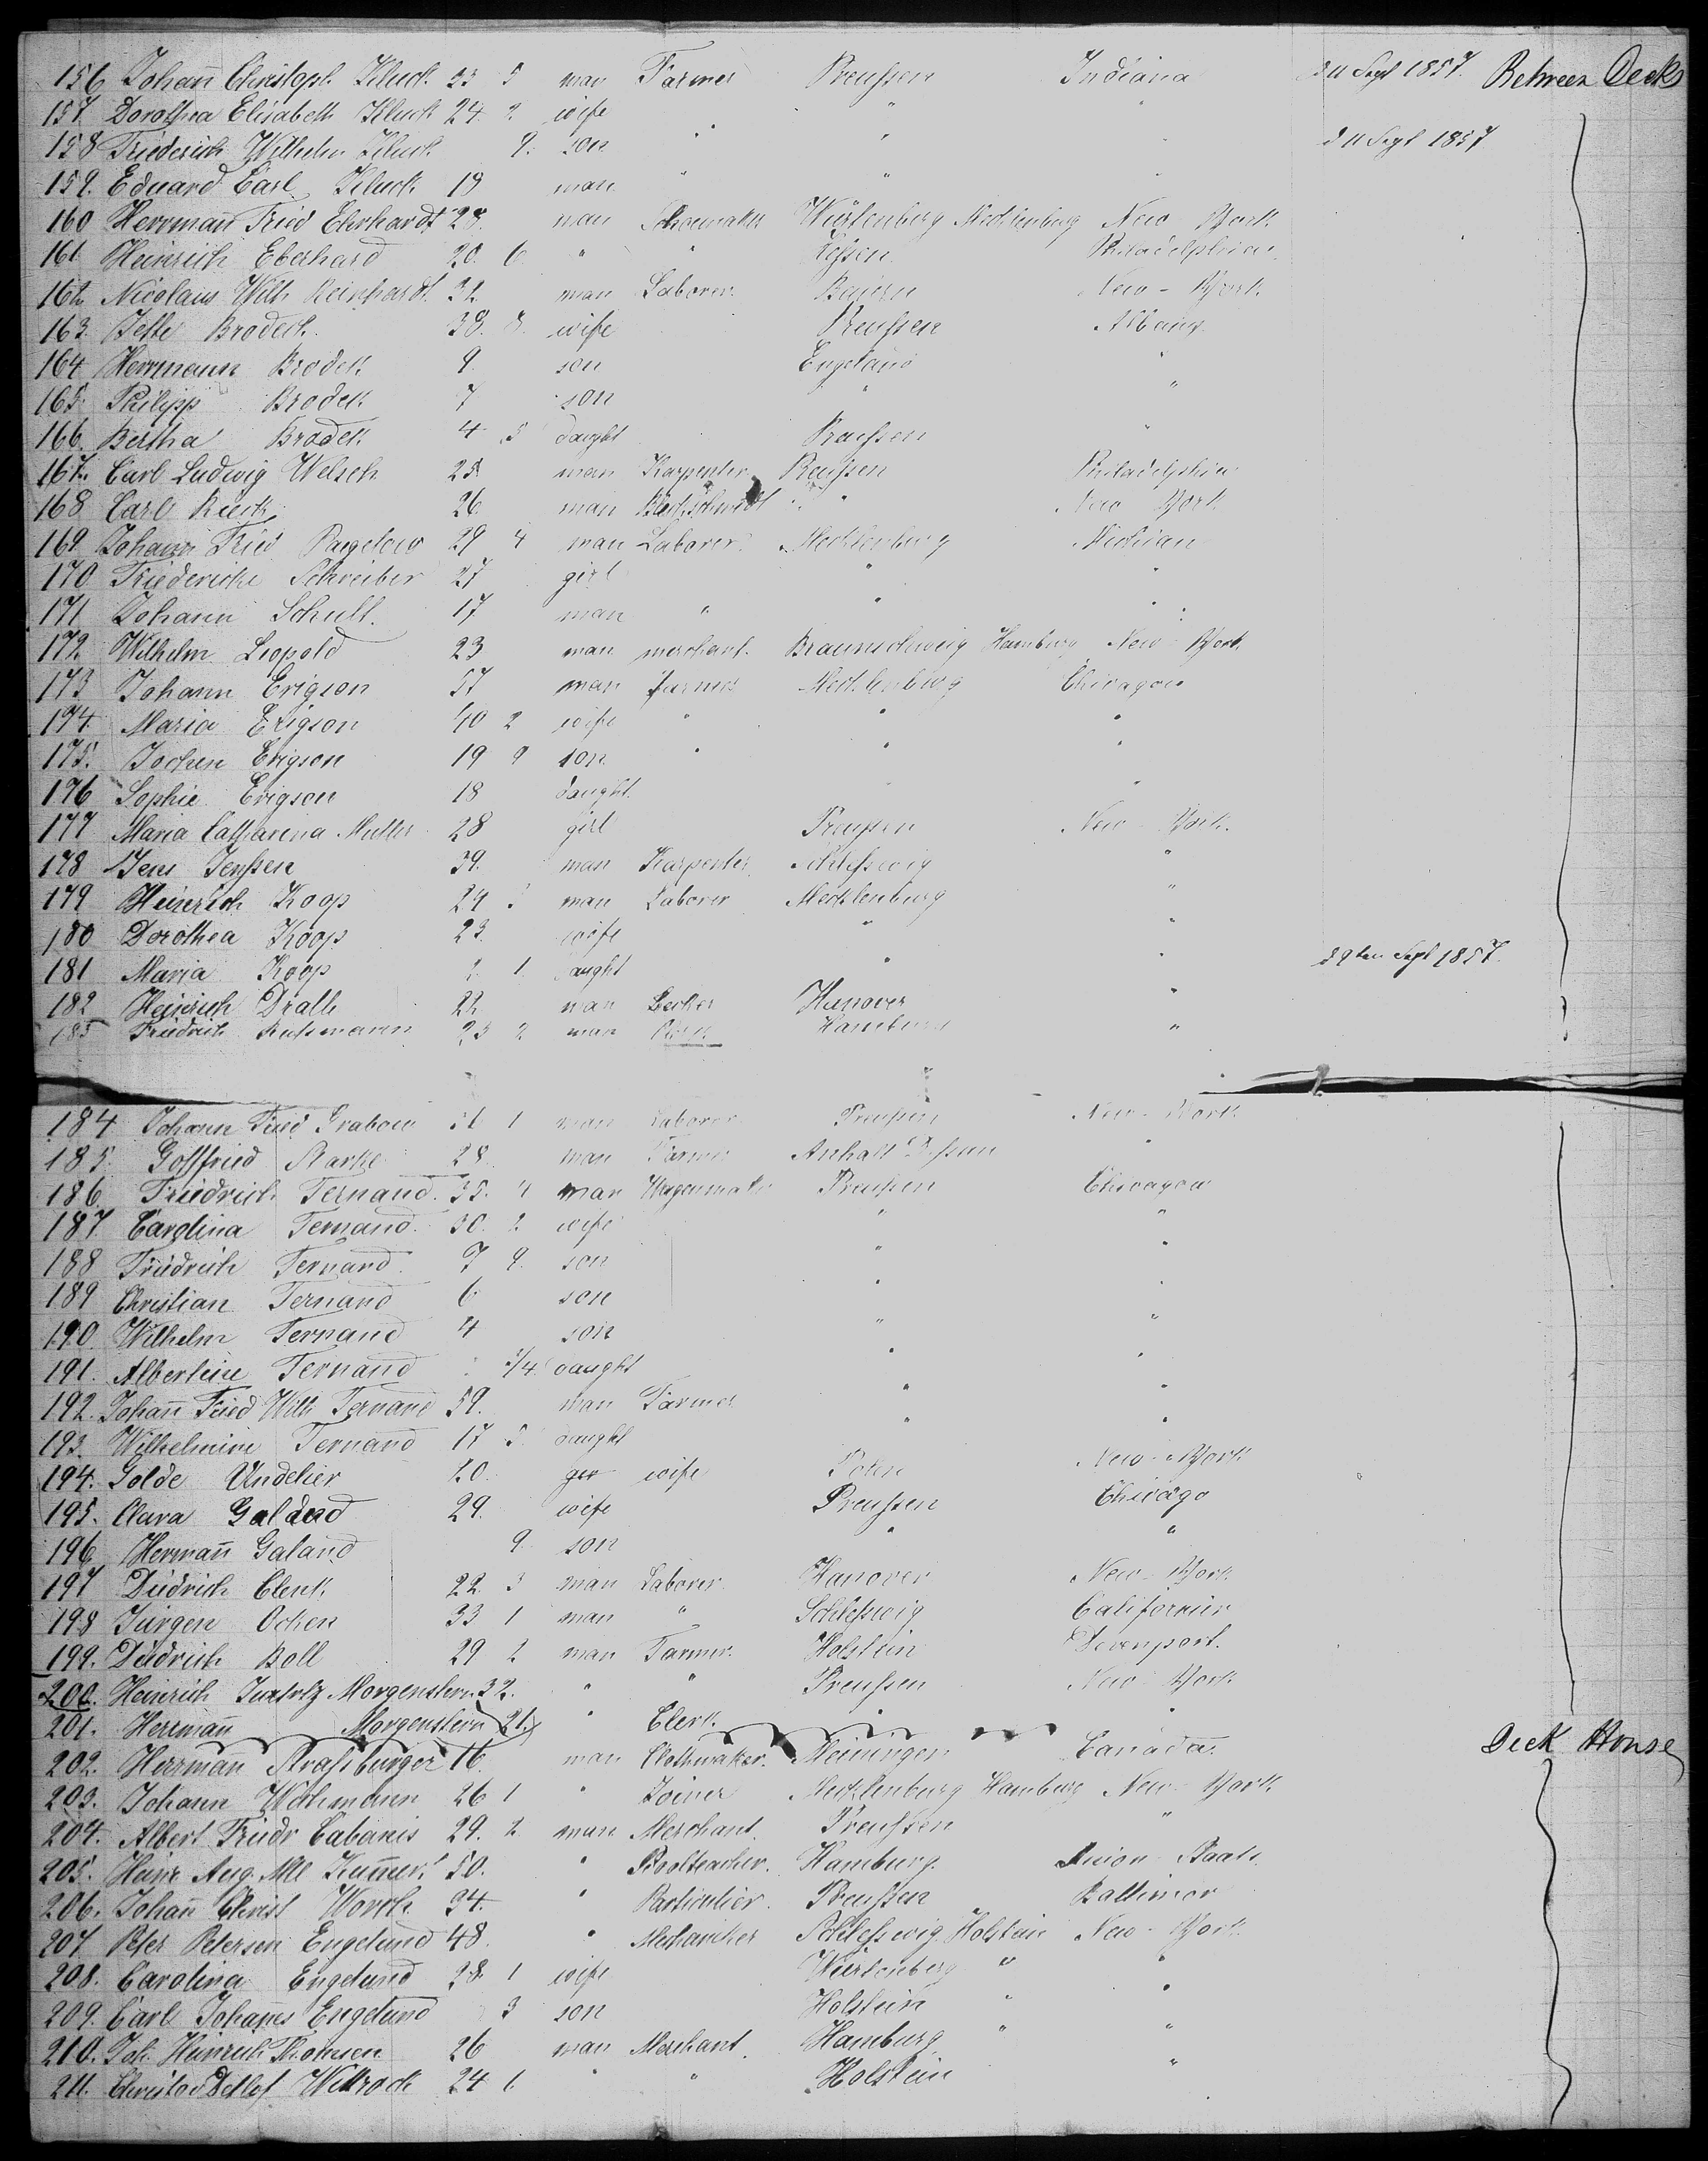 156 Johan̄ Christoph Kluck 23 5 man Farmer Preußen Indiana d 11 Sept 1857. Between Decks
157. Dorothea Elisabeth Kluck 24. 2 wife " "
158 Friederich Wilhelm Kluck 9. son " " d 11 Sept 1857
159. Eduard Carl Kluck 19 man " "
160 Herrman Fried Eberhardt 28. man Schoemaker Würtenberg Mecklenburg New York
161 Heinrich Eberhard 20. 6 " " Hessen Philadelphia
162 Nicolaus Wilh Reinhardt 32 man Laborer Baiern New-York
163. Brodeck 38. wife Preußen Albany
164 Herrmann Brodek 9. son England "
165. Philipp Brodek 7 son " "
166. Bertha Brodek 4 5 daught Preußen "
167. Carl Ludwig Welsch 25 man Karpenter Preußen Philadelphia
168 Carl Rieck 26 man " New York
169 Johann Fried Pagelow 29 4 man Laborer Mecklenburg Michian
170 Friedericke Schreiber 27 girl " "
171 Johann Schult. 17 man " " "
172 Wilhelm Leopold 23 man merchant. Braunschweig Hamburg New York
173 Johann Erigson 57 man farmer Mecklenburg Chicagou
174. Maria Erigson 40 2 wife " " "
175. Jochen Erigson 19 9 son " " "
176 Sophie Erigson 18 daught. " "
177 Maria Catharina Muller 28 girl Preußen New-York.
178 Jens Jenßen 39. man Karpenter Schleßwig "
179 Heinrich Koop 24 man Laborer Mecklenburg "
180 Dorothea Koop 23 wife " "
181 Maria Koop 2. 1 daught " " d 9ten Sept 1857.
182 Heinrich Dralle 22 man Hanover "
183 Friedrich 25 2 man Hamburg "
184 Johann Fried Grabow 31 1 man Laborer Preußen New-York
185. Gottfried Starke 28 man Farmer Anhalt Deßaun "
186. Friedrich Fernand. 35. 4 man Wagenmaker Preußen Chicagou
187. Carolina Fernand. 30. 2 wife " "
188 Friedrich Fernand. 7 9. son " "
189 Christian Fernand 6 son " "
190 Wilhelm Fernand 4 son " "
191. Albertine Fernand 3/4 daught " "
192. Johan̄ Fried Wilh Fernand 59. man Farmer " "
193. Wilhelmine Fernand 17 5 daught " "
194. Golde Undelier 20. wife Polen New-York
195. Clara Galand 29. wife Preußen Chicago
196 Herman̄ Galand 9 son " "
197 Diedrich Clenk 22. 3 man Laborer Hanover New-York
198 Jürgen Ocken 33 1 man " Schleßwig Californien
199. Diedrich Boll 29 2 man Farmer. Holstein Davenport.
200. Heinrich Morgenstern 32. " " Preußen New York
201. Herrman̄ Morgenstern 21. " Clerk "
202. Herrman̄ Straßburger 16. man Clothmaker. Meiningen Canada. Deck House
203. Johann Wohmann 26 1 " Joiner Mecklenburg Hamburg New York
204. Albert Friedr Cabanis 29. 2 man Merchant. Preußen "
205. Heinr Aug. 50. " Hamburg. Union Staats
206. Johan̄ Christ Worth 34. " Particulier. Preußen Baltimor
207 Peter Petersen Engelund 48. " Mechaniker Schleßwig Holstein New-York
208. Carolina Engelund 28. 1 wife Würtenberg " "
209. Carl Johan̄es Engelund 3 son Holstein " "
210. Joh. Heinrich Thomsen 26 man Merchant. Hamburg " "
211. Detlef Wittrock 24 1 " " Holstein "